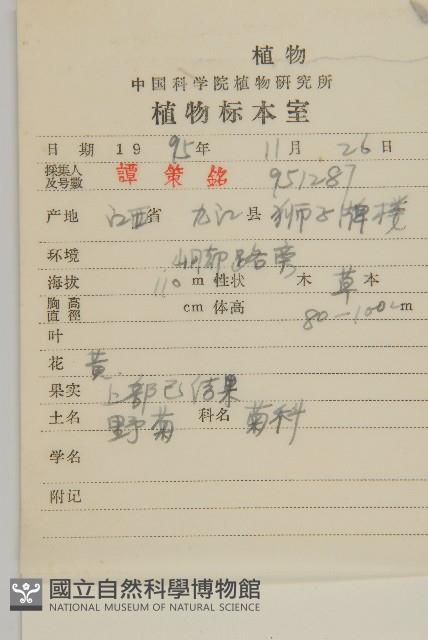 植物
中国科学院植物研究所
植物标本室
日期 1995年 11月 26日
採集人及号数 譚策銘 951287
产地 江西省 九江县 狮子
环境 路旁
海拔 110 m 性状 木 草本
胸高直徑 cm 体高 80—100cm
叶
花 黄
果实 上部已结果
土名 野菊 科名 菊科
学名
附记
國立自然科學博物館
NATIONAL MUSEUM OF NATURAL SCIENCE